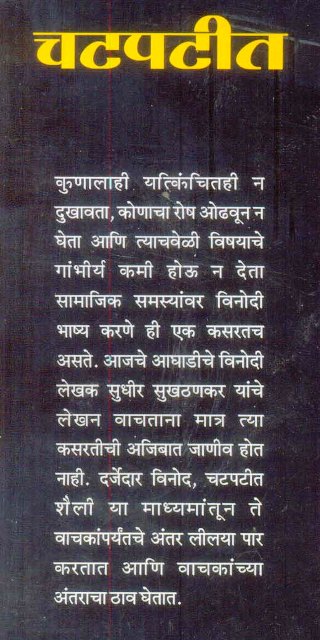 चटपटीत
कुणालाही यत्किंचितही न
दुखावता, कोणाचा रोष ओढवून न
घेता आणि त्याचवेळी विषयाचे
गांभीर्य कमी होऊ न देता
सामाजिक समस्यांवर विनोदी
भाष्य करणे ही एक कसरतच
असते. आजचे आघाडीचे विनोदी
लेखक सुधीर सुखठणकर यांचे
लेखन वाचताना मात्र त्या
कसरतीची अजिबात जाणीव होत
नाही. दर्जेदार विनोद, चटपटीत
शैली या माध्यमांतून ते
वाचकांपर्यंतचे अंतर लीलया पार
करतात आणि वाचकांच्या
अंतराचा ठाव घेतात.